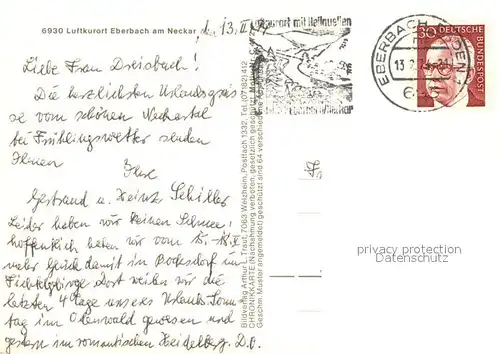 6930 Luftkurort Eberbach am Neckar, d. 13. II.
Liebe Frau Dreisbach!
Die herzlichsten Urlaubsgrüs
se vom schönen Neckartal
bei Frühlingswetter senden
Ihnen Ihre
Gertraud u. Heinz Schiller
Leider haben wir keinen Schnee,
hoffentlich haben wir vom 15.-18.II.
mehr Glück damit in
Fichtelgebirge. Dort weilen wir die
letzten 4 Tage unseres Urlaubs. Sonn
tag im Odenwald gewesen und
gestern im romantischen Heidelberg. D.O.
Bildverlag Arthur F. Traut, 7063 Welzheim, Postfach 1332, Tel. (07182)
CHRONIKKARTE (Nachahmung verboten, gesetzlich geschützt)
Geschm. Muster angemeldet/geschützt sind 64 verschiedene
Luftkurort mit Heilquellen
EBERBACH
13.2.
30
DEUTSCHE
BUNDESPOST
Fr
privacy protection
Datenschutz